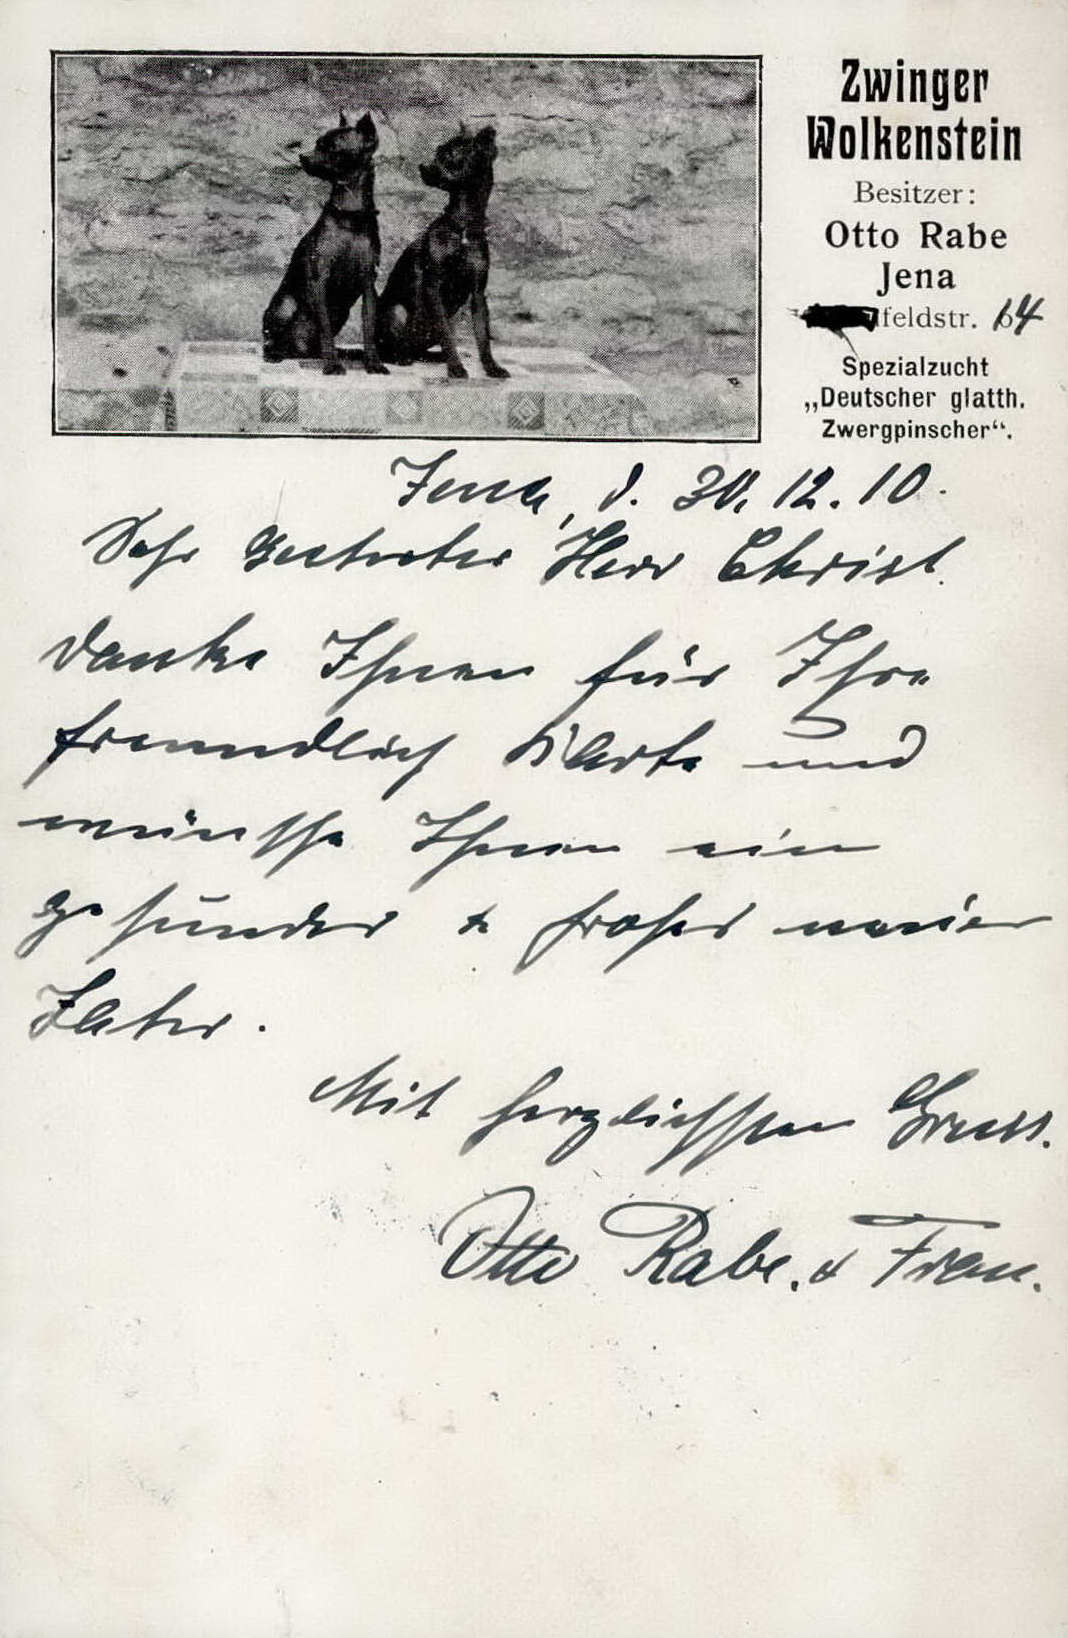 Zwinger
Wolkenstein
Besitzer:
Otto Rabe
Jena
feldstr. 64
Spezialzucht
„Deutscher glatth.
Zwergpinscher“.
Jena, d. 30. 12. 10.
Sehr geehrter Herr Christ.
Danke Ihnen für Ihre
freundlich Karte und
wünsche Ihnen ein
gesundes & frohes neues
Jahr.
Mit herzlichsten Gruss.
Otto Rabe. & Frau.